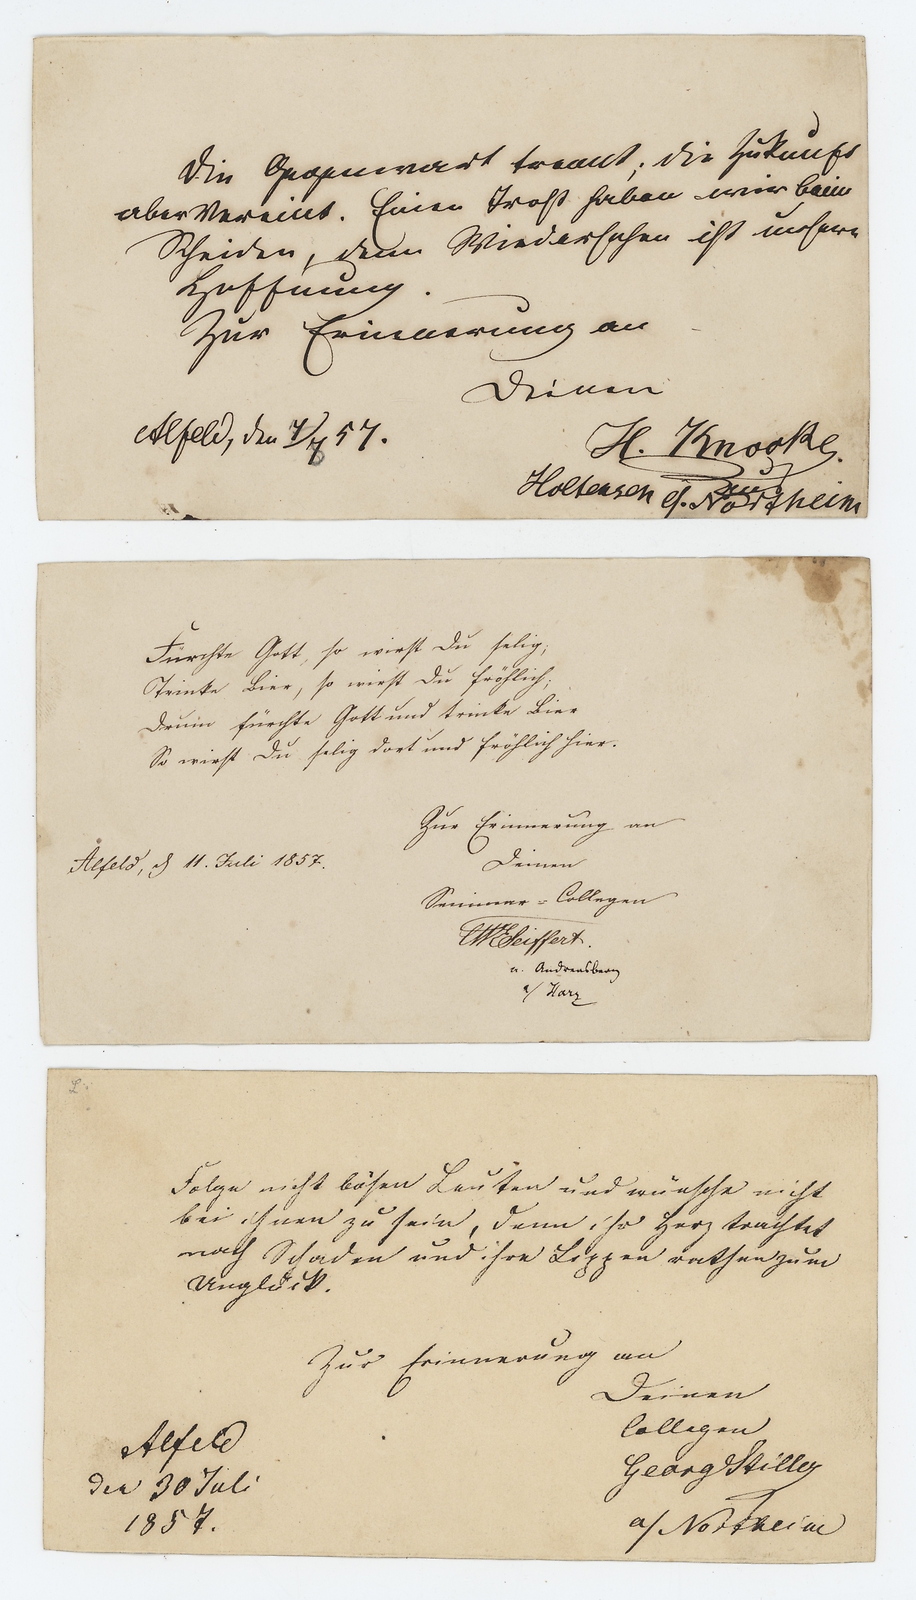 Die Gegenwart trennt, die Zukunft
aber Vereint. Einen Trost haben wir beim
Scheiden, denn Wiedersehen ist unsere
Hoffnung.
Zur Erinnerung an
Deinen
Alfeld, den 7/7 57.
H. Knooke.
aus
Holtensen b/. Northeim
Fürchte Gott, so wirst Du selig;
Trinke Bier, so wirst Du fröhlich;
Drum fürchte Gott und trinke Bier
So wirst Du selig dort und fröhlich hier.
Zur Erinnerung an
Alfeld, d 11. Juli 1857.
Deinen
Seminar-Collegen
Seiffert.
a. Andreasberg
a/ Harz
L.
Folge nicht bösen Leuten und wünsche nicht
bei ihnen zu sein, denn ihr Herz trachtet
nach Schaden und ihre Lippen rathen zum
Unglück.
Zur Erinnerung an
Deinen
Collegen
Alfeld
Georg Stille
den 30 Juli
1857.
a/ Northeim